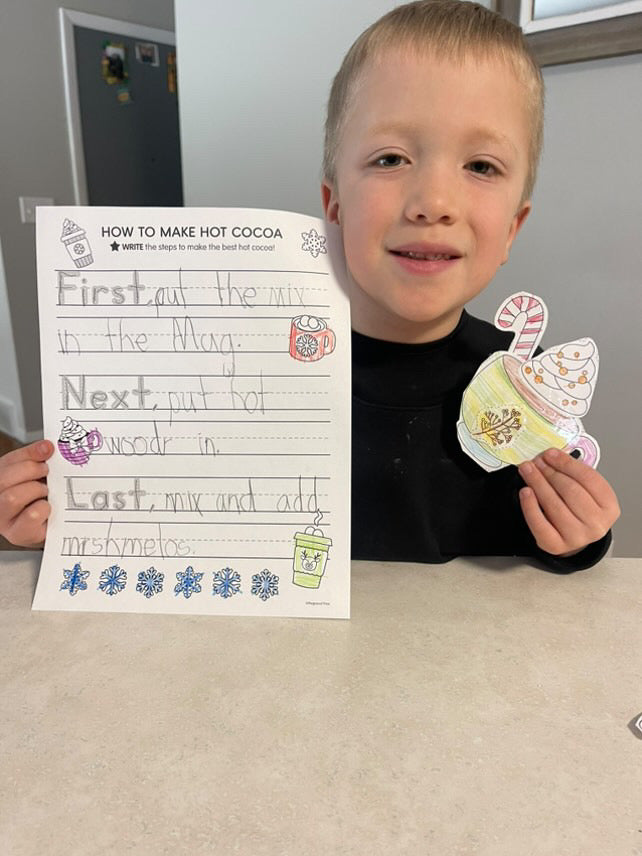 HOW TO MAKE HOT COCOA
WRITE the steps to make the best hot cocoa!
First, put the mix
in the Mug.
Next, put hot
woodr in.
Last, mix and add
mrshmelos.